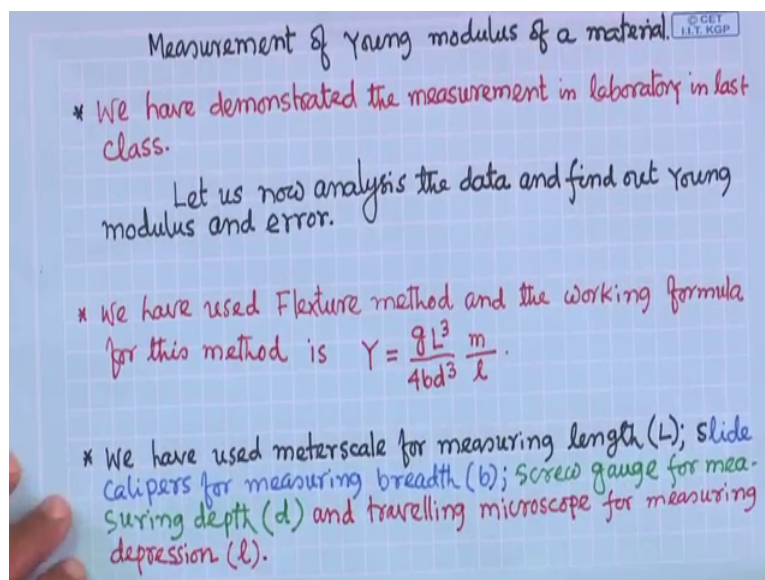 Measurement of Young modulus of a material.
© CET
I.I.T. KGP
* We have demonstrated the measurement in laboratory in last
class.
Let us now analysis the data and find out Young
modulus and error.
* We have used Flexture method and the working formula
for this method is Y = gL³/4bd³ m/l.
* We have used meterscale for measuring length (L); slide
calipers for measuring breadth (b); screw gauge for mea-
suring depth (d) and travelling microscope for measuring
depression (l).